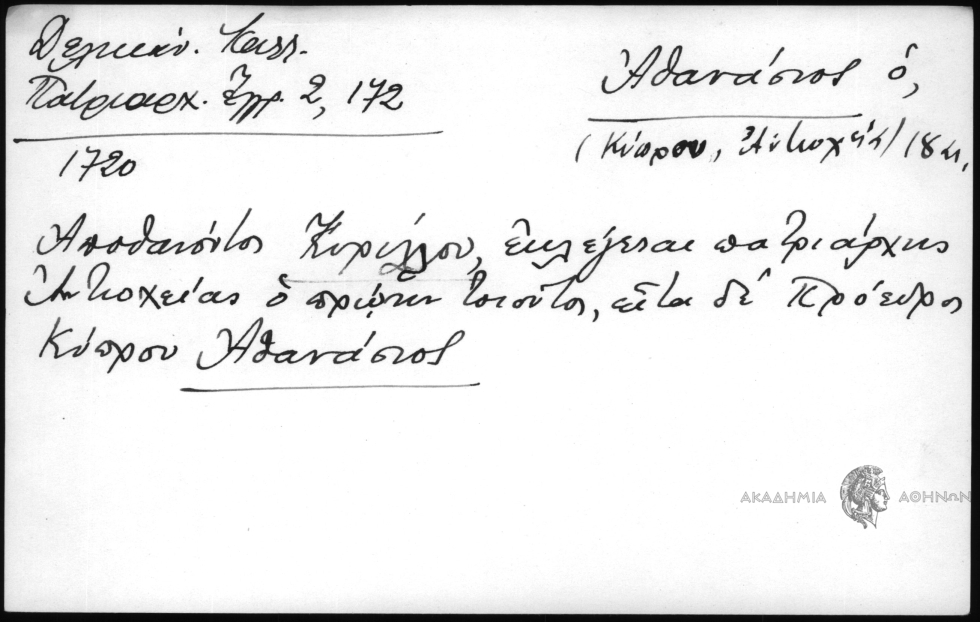 Δελικάν. Κατλ.
Πατριαρχ. Ἐγγρ. 2, 172
1720
Ἀθανάσιος ὁ,
(Κύπρου, Ἀντιοχείας) 18 αι.
Ἀποθανόντος Κυρίλλου, ἐκλέγεται πατριάρχης
Ἀντιοχείας ὁ πρώην τοιοῦτος, εἶτα δὲ Πρόεδρος
Κύπρου Ἀθανάσιος
ΑΚΑΔΗΜΙΑ ΑΘΗΝΩΝ